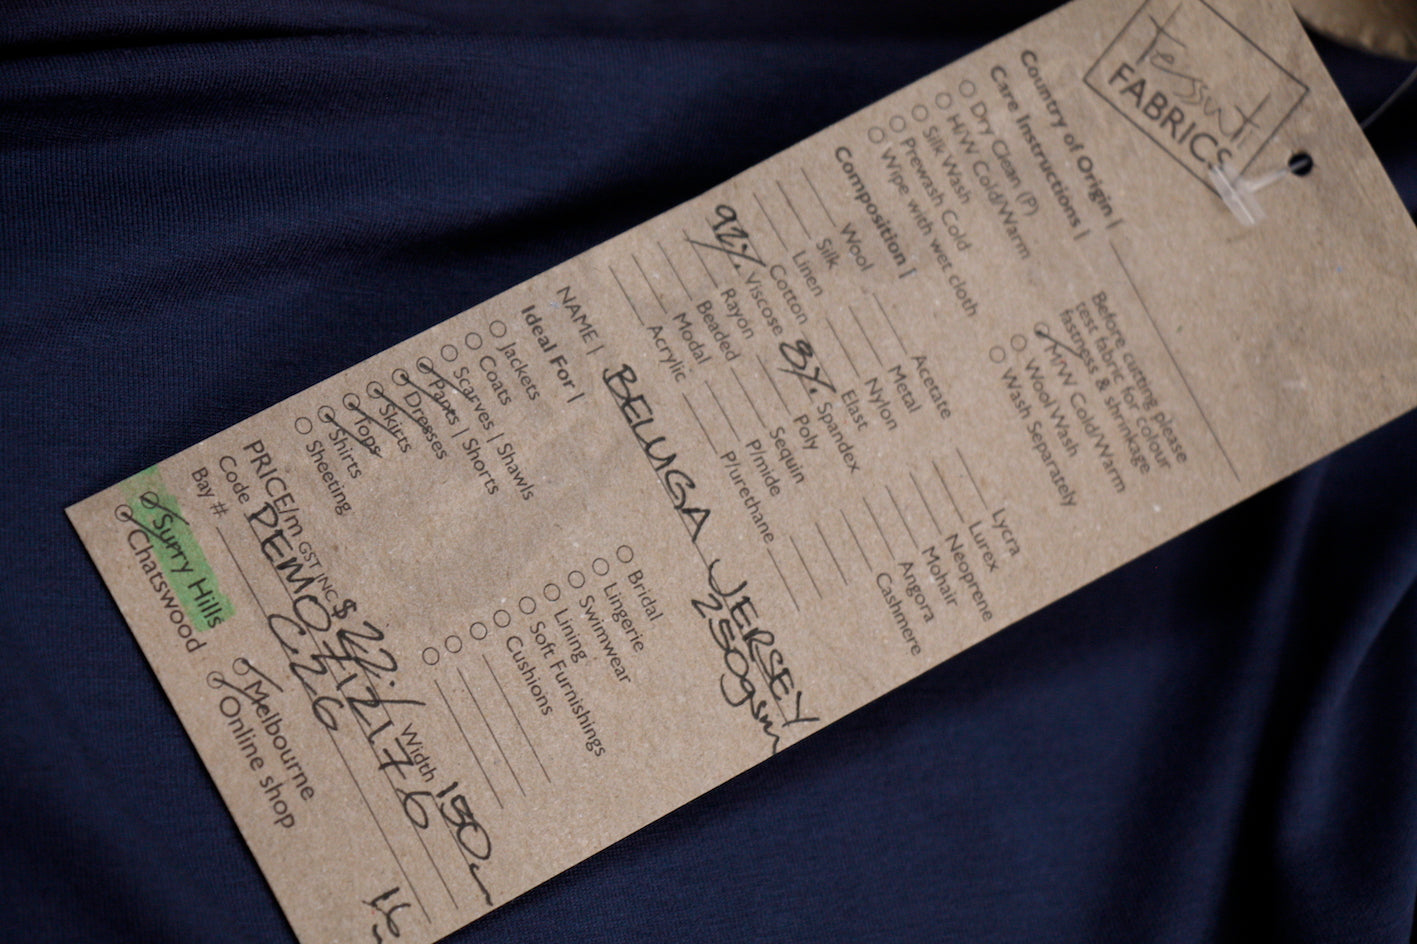 tessuti
FABRICS
Country of Origin |
Care Instructions |
Before cutting please
test fabric for colour
fastness & shrinkage
Dry Clean (P)
M/W Cold/Warm
H/W Cold/Warm
Wool Wash
Silk Wash
Wash Separately
Prewash Cold
Wipe with wet cloth
Composition |
Wool
Acetate
Lycra
Silk
Metal
Lurex
Linen
Nylon
Neoprene
Cotton
Elast
Mohair
92% Viscose
8% Spandex
Angora
Rayon
Poly
Cashmere
Beaded
Sequin
Modal
P/mide
Acrylic
P/urethane
NAME | BELUGA JERSEY
250gsm
Ideal For |
Jackets
Bridal
Coats
Lingerie
Scarves | Shawls
Swimwear
Pants | Shorts
Lining
Dresses
Soft Furnishings
Skirts
Cushions
Tops
Shirts
Sheeting
PRICE/m GST INC $22.- Width 150
Code PEMO 71217-6
Bay # C26
Surry Hills
Melbourne
Chatswood
Online shop